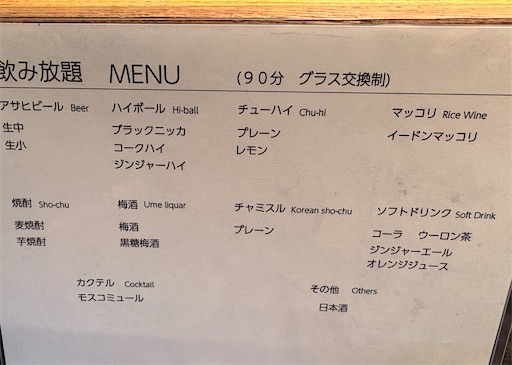 飲み放題 MENU (90分 グラス交換制)
アサヒビール Beer
生中
生小
ハイボール Hi-ball
ブラックニッカ
コークハイ
ジンジャーハイ
チューハイ Chu-hi
プレーン
レモン
マッコリ Rice Wine
イードンマッコリ
焼酎 Sho-chu
麦焼酎
芋焼酎
梅酒 Ume liquar
梅酒
黒糖梅酒
チャミスル Korean sho-chu
プレーン
ソフトドリンク Soft Drink
コーラ ウーロン茶
ジンジャーエール
オレンジジュース
カクテル Cocktail
モスコミュール
その他 Others
日本酒